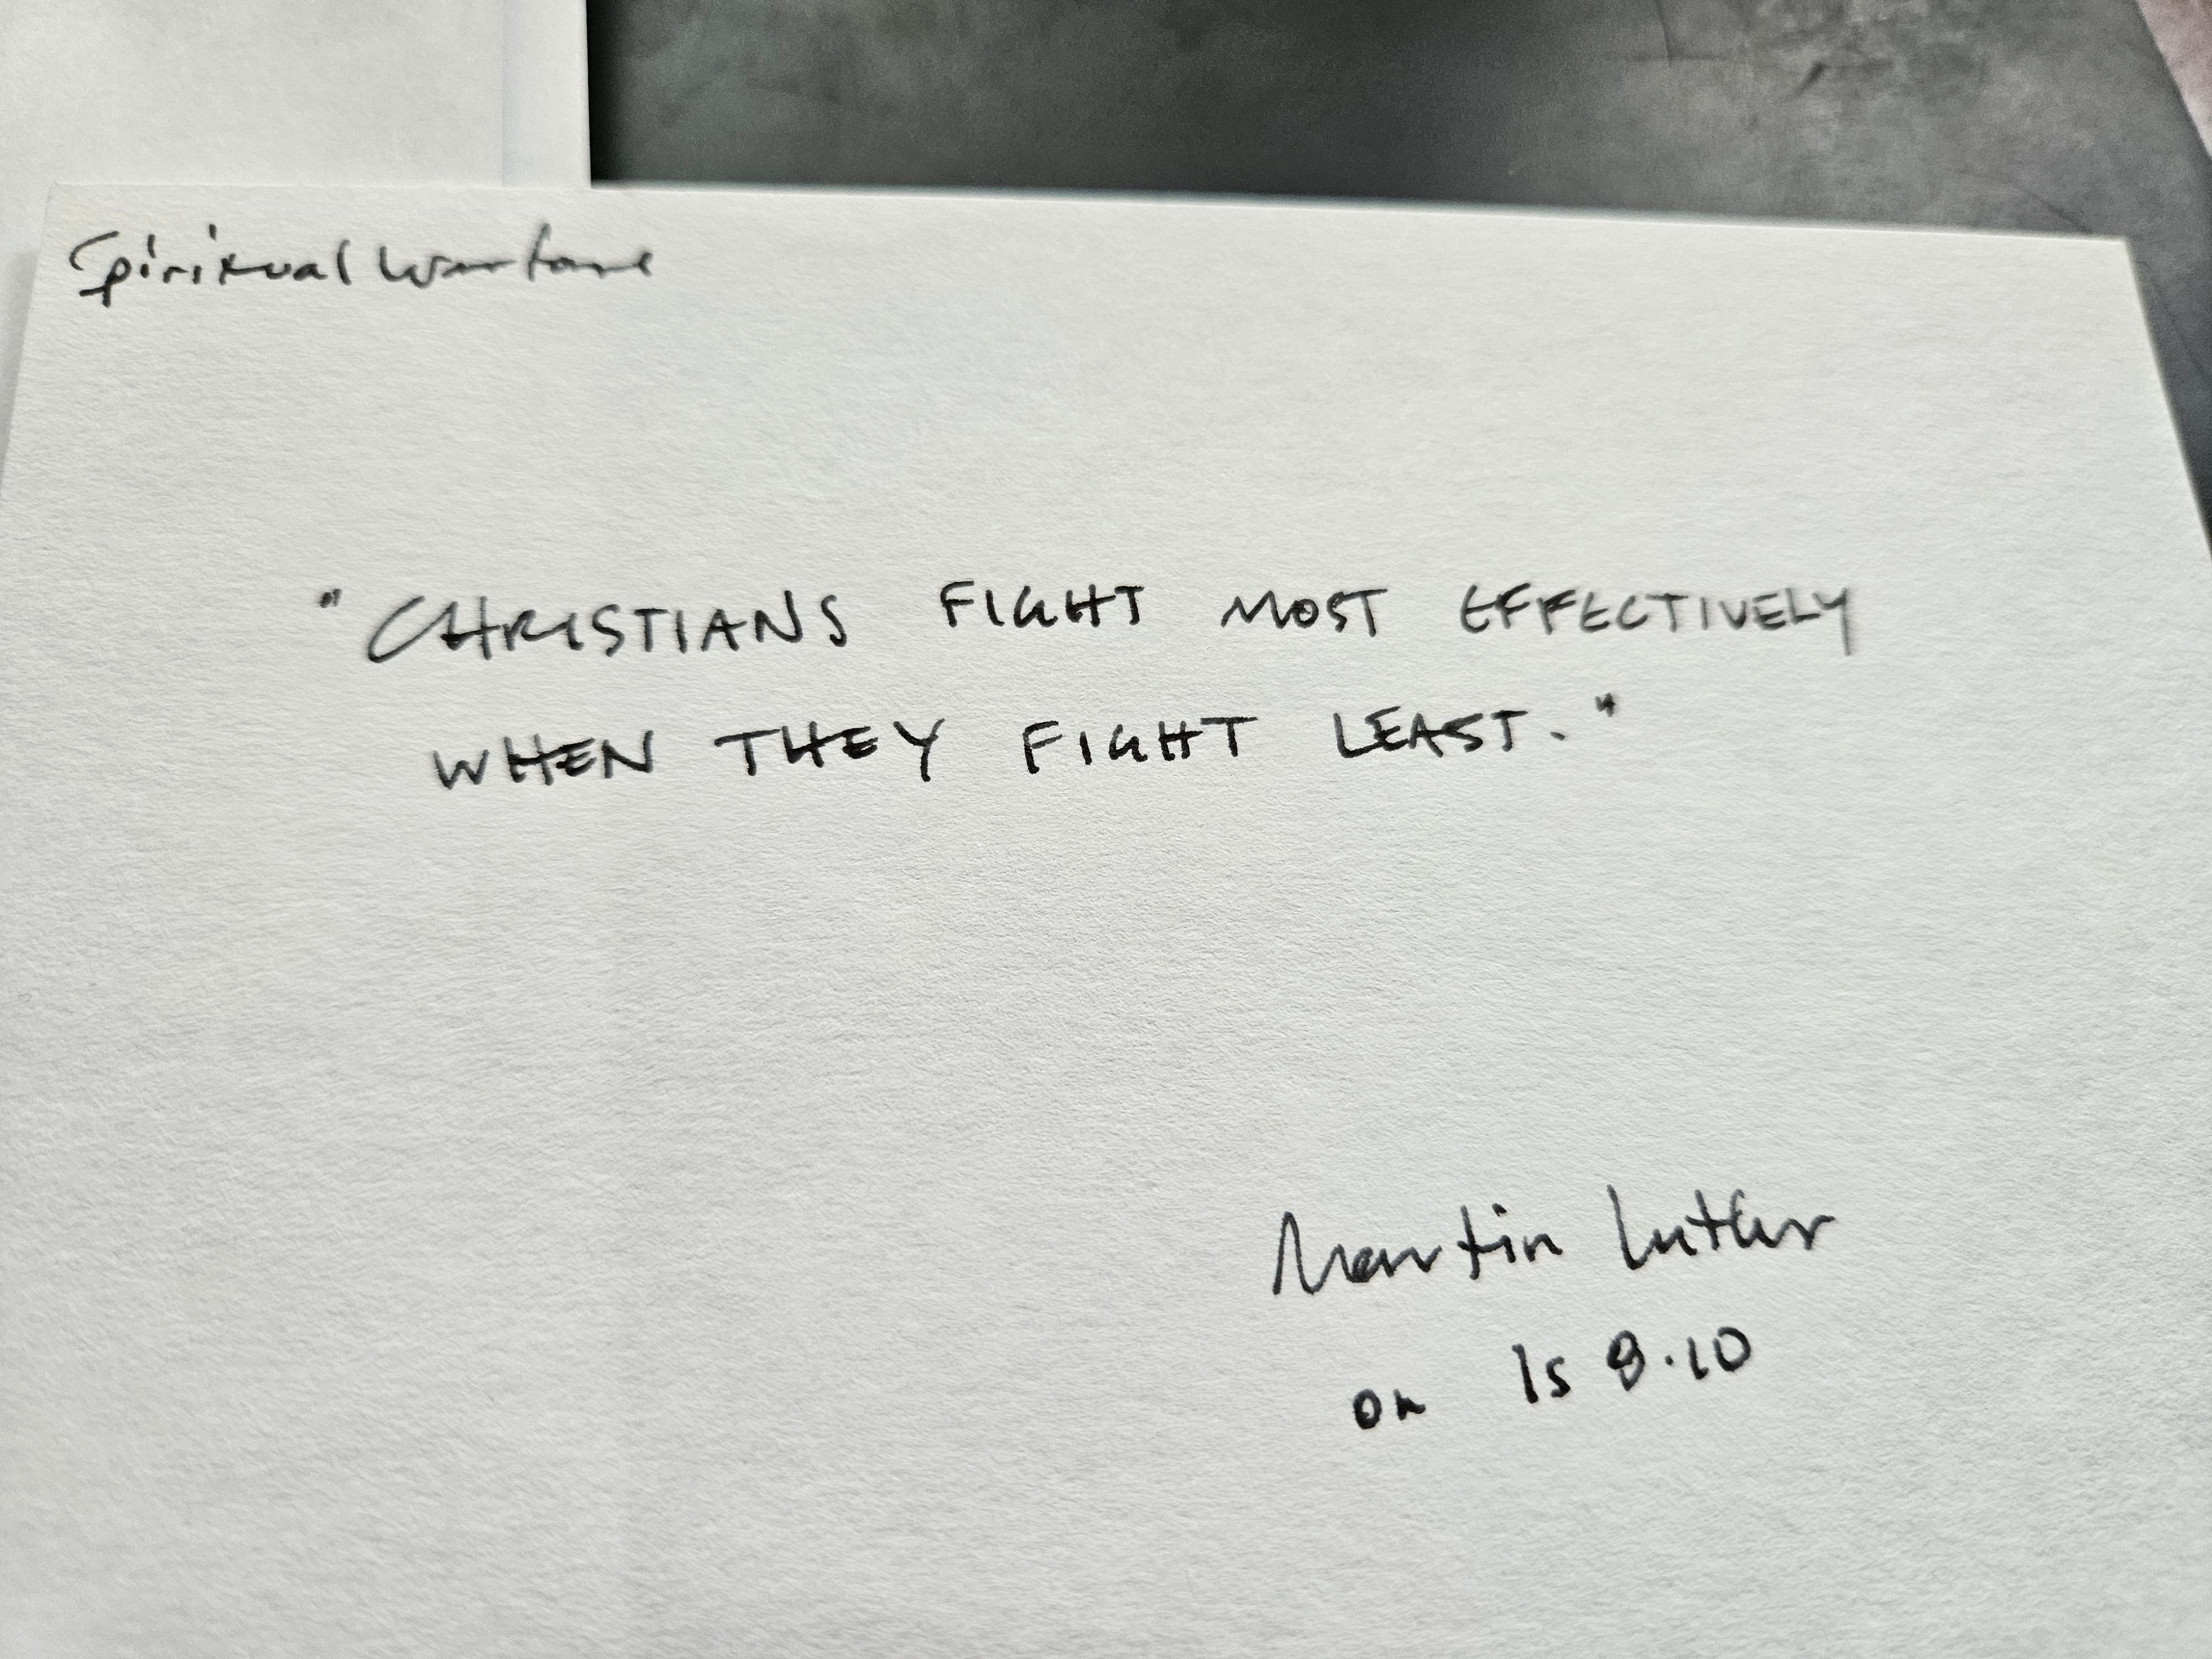 Spiritual Warfare
"CHRISTIANS FIGHT MOST EFFECTIVELY
WHEN THEY FIGHT LEAST."
Martin Luther
on Is 8.10